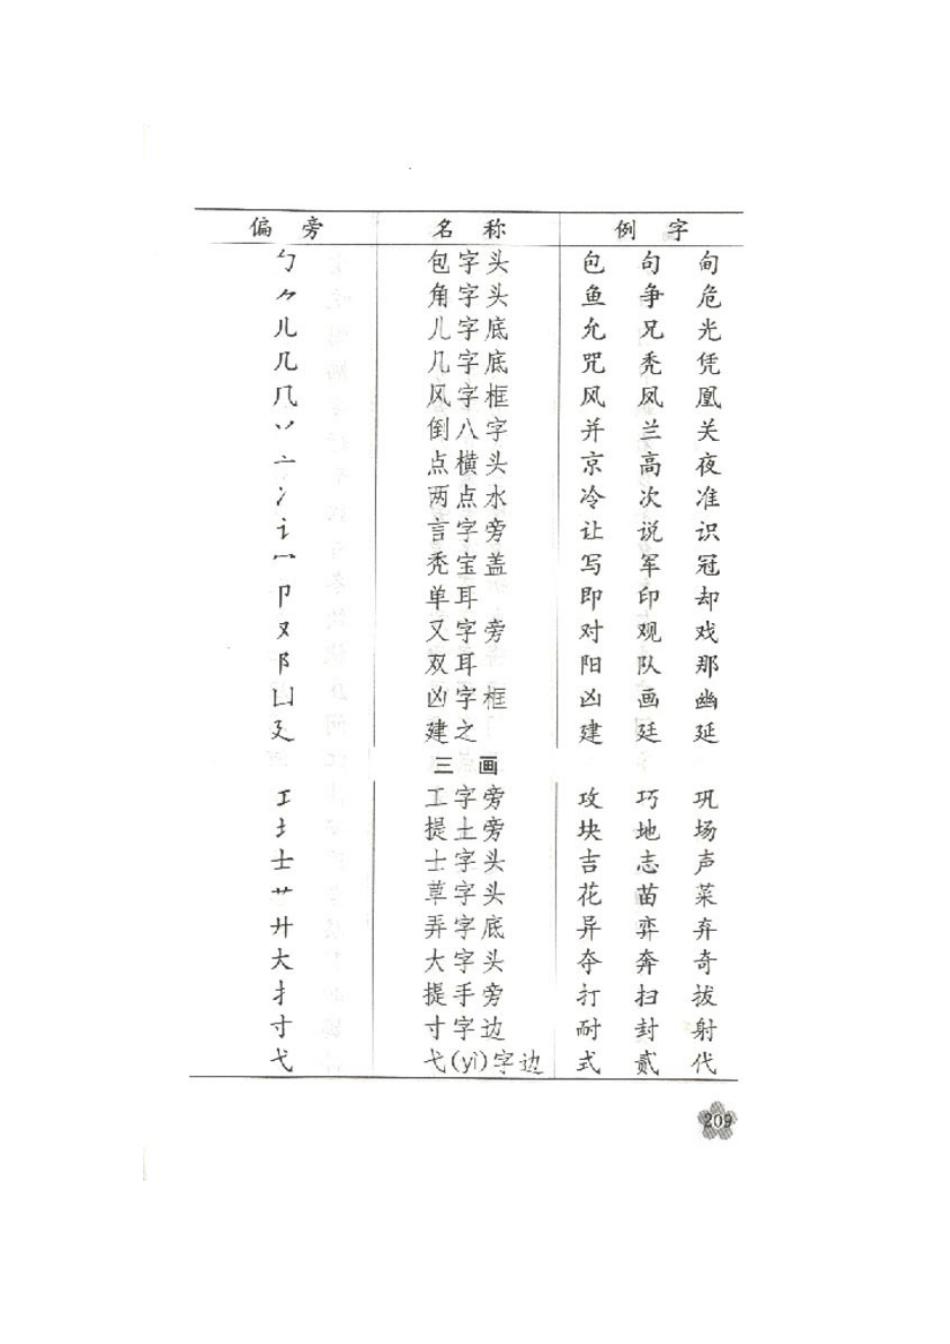 偏 旁 名 称 例 字
勹 包字头 包 句 甸
⺈ 角字头 鱼 争 危
儿 儿字底 允 兄 光
几 几字底 咒 秃 凭
𠘨 风字框 风 凤 凰
丷 倒八字 并 兰 关
亠 点横头 京 高 夜
冫 两点水 冷 次 准
讠 言字旁 让 说 识
冖 秃宝盖 写 军 冠
卩 单耳 即 印 却
又 又字旁 对 观 戏
阝 双耳 阳 队 那
凵 凶字框 凶 画 幽
廴 建之 建 廷 延
三 画
工 工字旁 攻 巧 巩
土 提土旁 块 地 场
士 士字头 吉 志 声
艹 草字头 花 苗 菜
廾 弄字底 异 弈 弃
大 大字头 夺 奔 奇
扌 提手旁 打 扫 拔
寸 寸字边 耐 封 射
弋 弋(yì)字边 式 贰 代
209